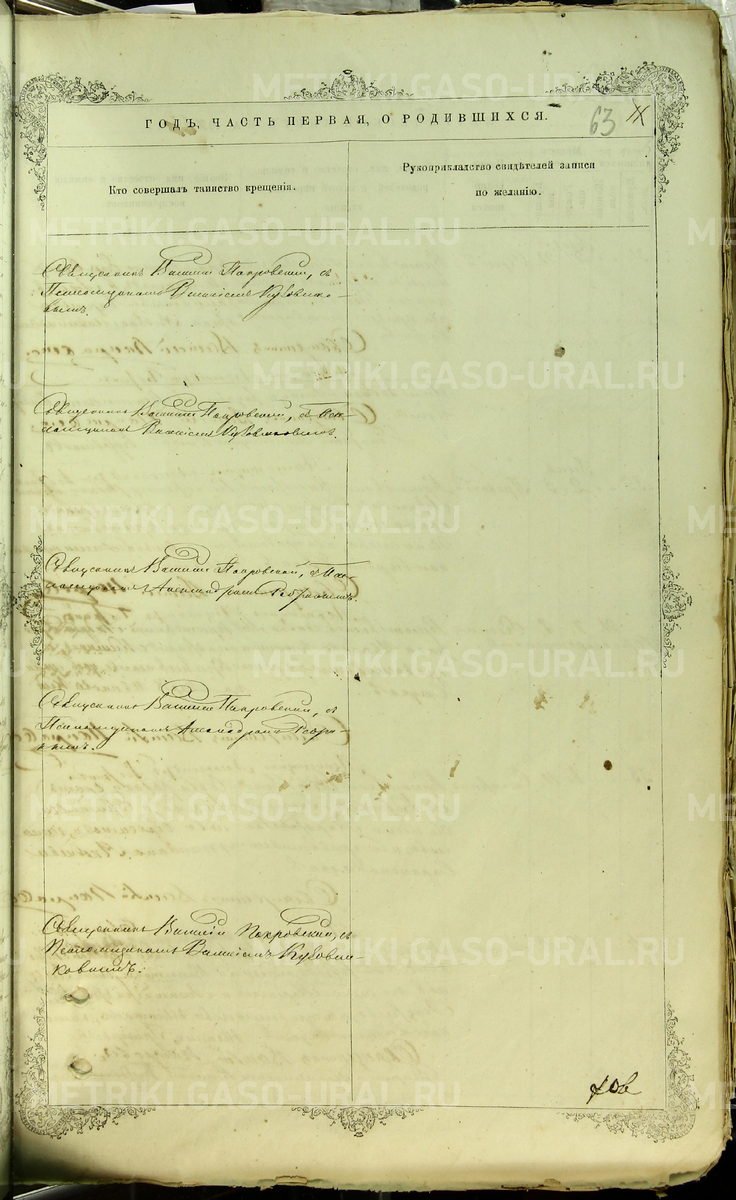 METRIKI.GASO-URAL.RU
ГОДЪ, ЧАСТЬ ПЕРВАЯ, О РОДИВШИХСЯ.
63
Кто совершалъ таинство крещенія.
Рукоприкладство свидѣтелей записи
по желанію.
Священникъ Василій Покровскій, съ
Псаломщикомъ Василіемъ Кубовико-
вымъ.
Священникъ Василій Покровскій, съ Пса-
ломщикомъ Василіемъ Кубовиковымъ.
Священникъ Василій Покровскій, съ Пса-
ломщикомъ Александромъ
Священникъ Василій Покровскій, съ
Псаломщикомъ Александромъ
Священникъ Василій Покровскій, съ
Псаломщикомъ Василіемъ Кубови-
ковымъ.